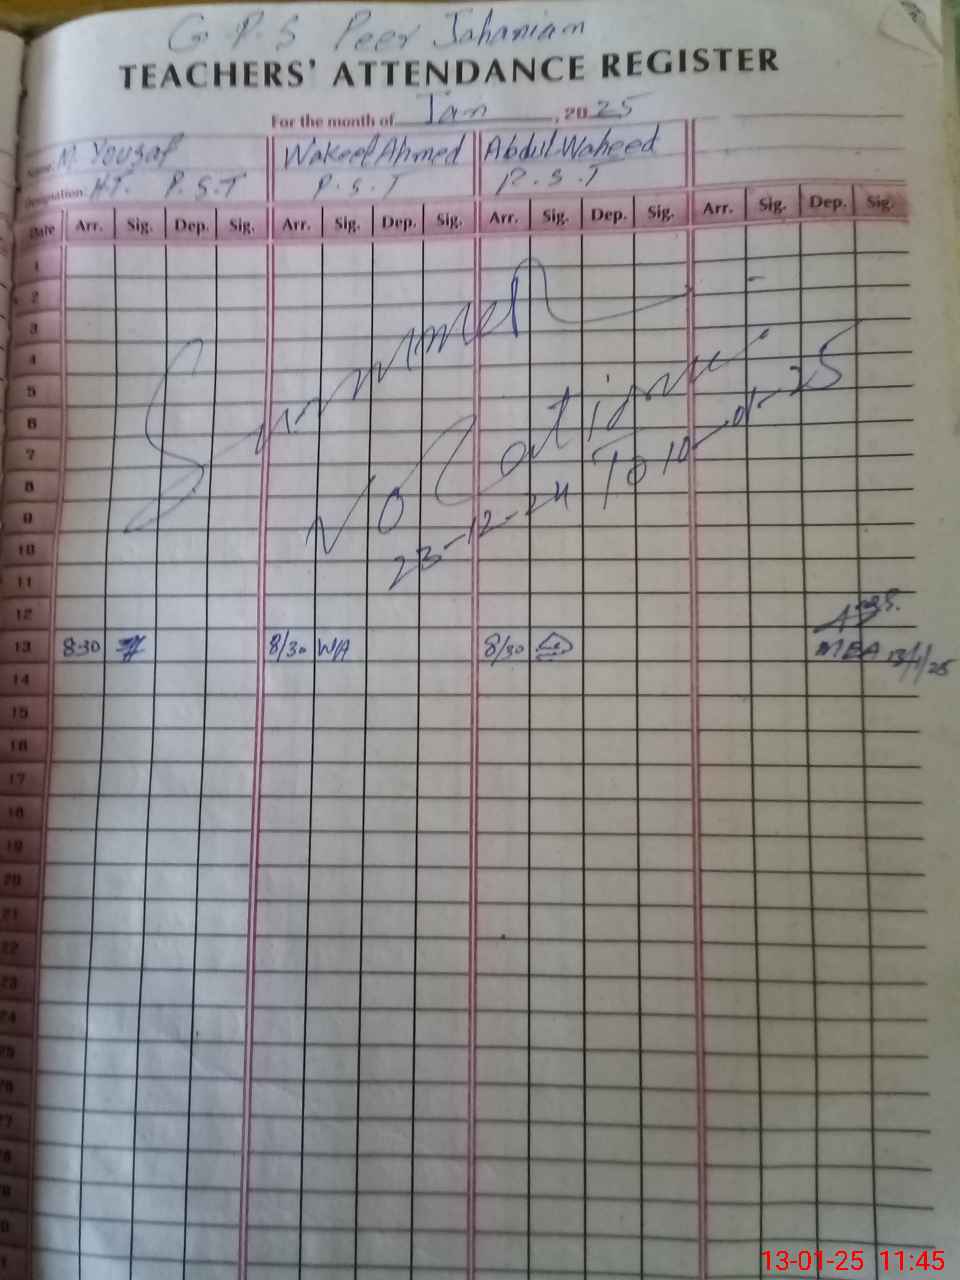 G. P. S Peer Jahaniam
TEACHERS' ATTENDANCE REGISTER
For the month of Jan, 2025
Name: M. Yousaf Wakeel Ahmed Abdul Waheed
Designation: H.T. P.S.T P.S.T P.S.T
Date Arr. Sig. Dep. Sig. Arr. Sig. Dep. Sig. Arr. Sig. Dep. Sig. Arr. Sig. Dep. Sig.
1
2
3
4
5
6
7
8
9
10
11
12
Summer
Vocations
23-12-24 To 10-01-25
13 8:30 8/30 WA 8/30 MEA 13/1/25
14
15
16
17
18
19
20
21
22
23
24
25
26
27
28
13-01-25 11:45